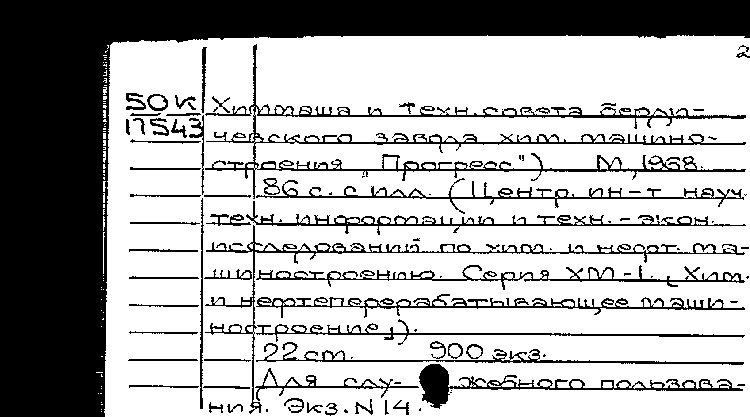 2
50 К Химмаша и техн. совета Берди-
17543 чевского завода хим. машино-
строения „Прогресс") М., 1968.
86 с. с илл. (Центр. ин-т науч.
техн. информации и техн. - экон.
исследований по хим. и нефт. ма-
шиностроению. Серия ХМ-1. „Хим.
и нефтеперерабатывающее маши-
ностроение").
22 cm. 900 экз.
Для слу- жебного пользова-
ния. Экз. N 14.